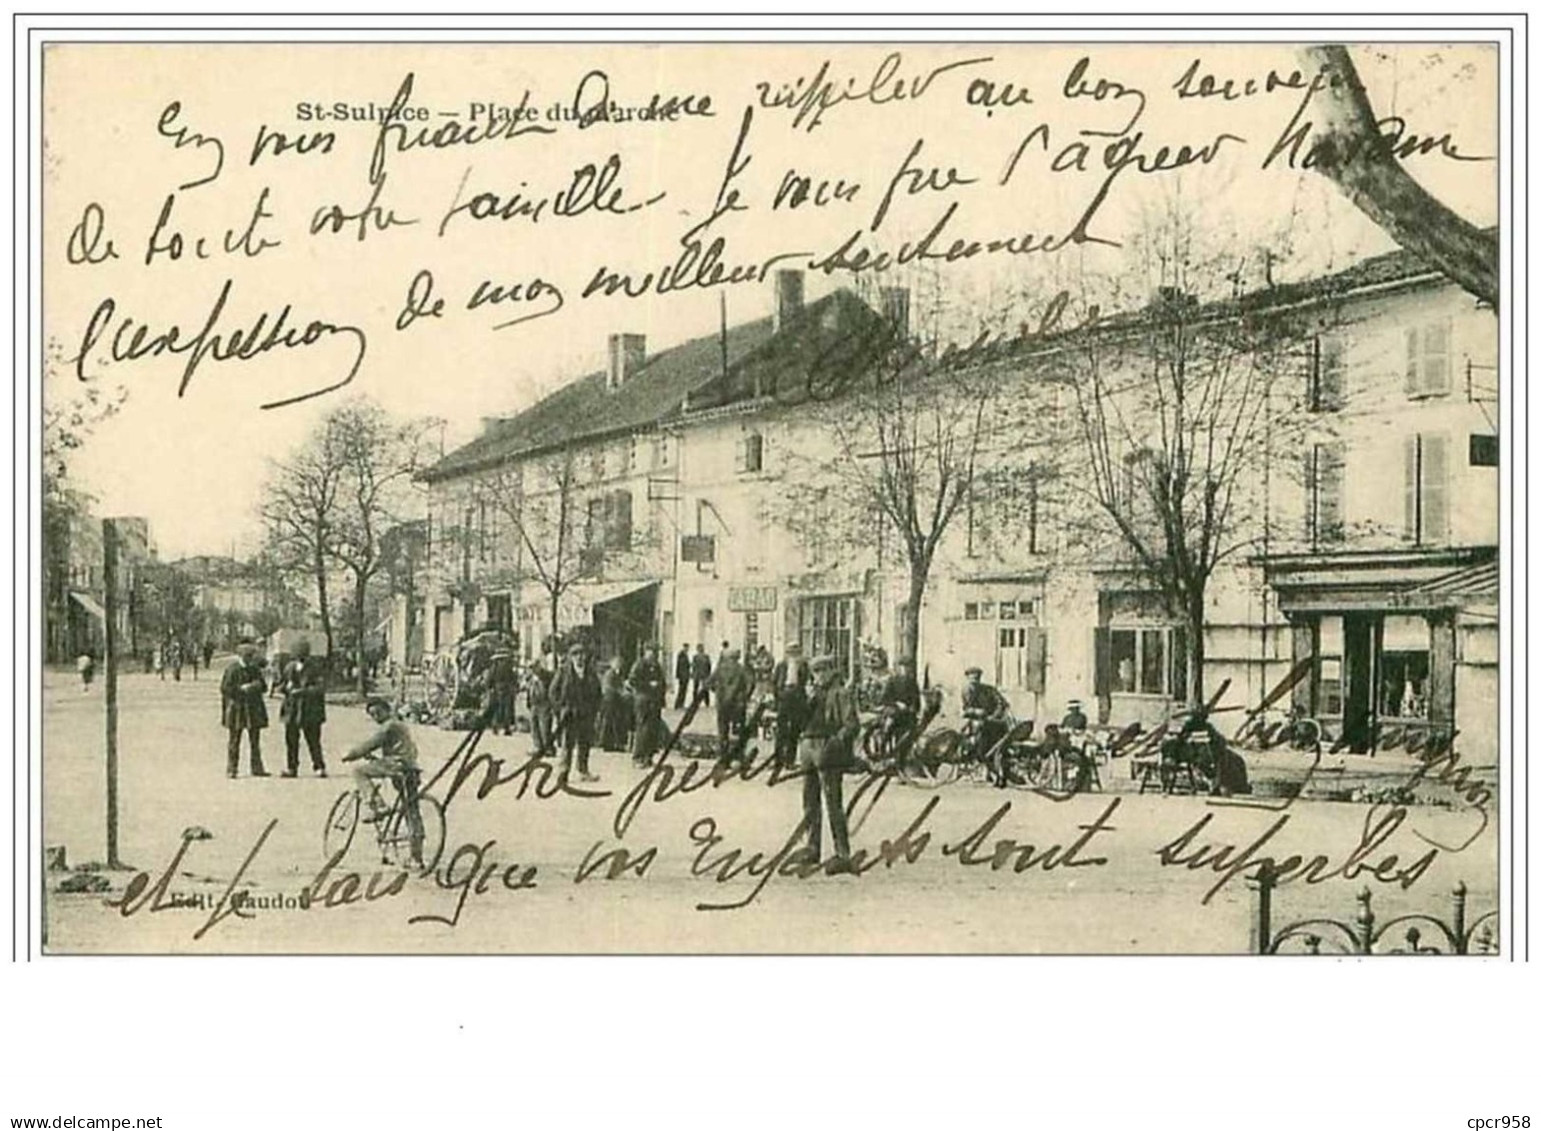 St-Sulpice — Place du Marché
En vous priant de me rappeler au bon souvenir
de toute votre famille. Je vous prie d'agréer Madame
l'expression de mon meilleur sentiment
TABAC
Votre petit est bien
et je sais que vos Enfants sont superbes
Edit. Gaudou
delcampe.net
cpcr958